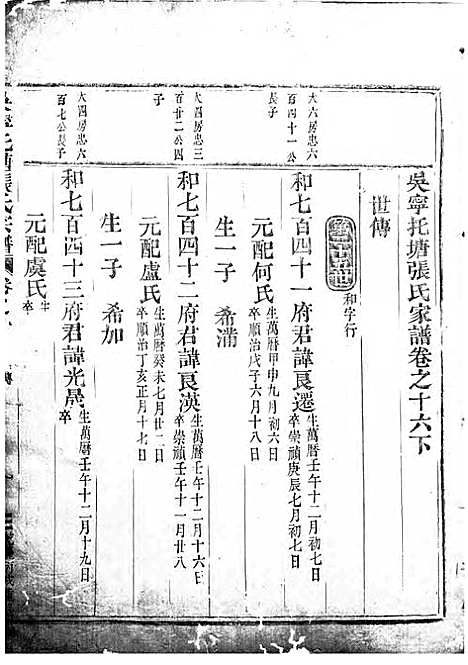 吳寧托塘張氏家譜卷之十六下
世傳
和字行
大六房忠六
百四十一公
長子
和七百四十一府君諱良遷
生萬曆壬午十二月初七日
卒崇禎庚辰七月初七日
元配何氏
生萬曆甲申九月初六日
卒順治戊子六月十八日
生一子 希滿
大四房忠三
百廿二公四
子
和七百四十二府君諱良漢
生萬曆壬午十二月十六日
卒崇禎壬午十一月廿八
元配盧氏
生萬曆癸未七月廿二日
卒順治丁亥正月十七日
生一子 希加
大四房忠六
百七公長子
和七百四十三府君諱光晟
生萬曆壬午十二月十九日
卒
元配虞氏
生
卒